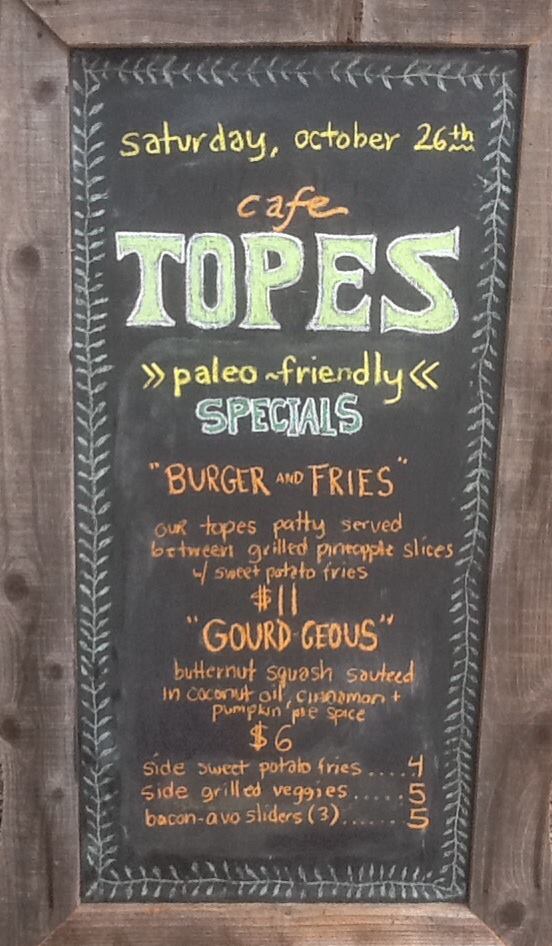 saturday, october 26th
cafe
TOPES
» paleo~friendly «
SPECIALS
"BURGER AND FRIES"
our topes patty served
between grilled pineapple slices
w/ sweet potato fries
$11
"GOURD-GEOUS"
butternut squash sauteed
in coconut oil, cinnamon +
pumpkin pie spice
$6
side sweet potato fries....4
side grilled veggies.....5
bacon-avo sliders (3)......5